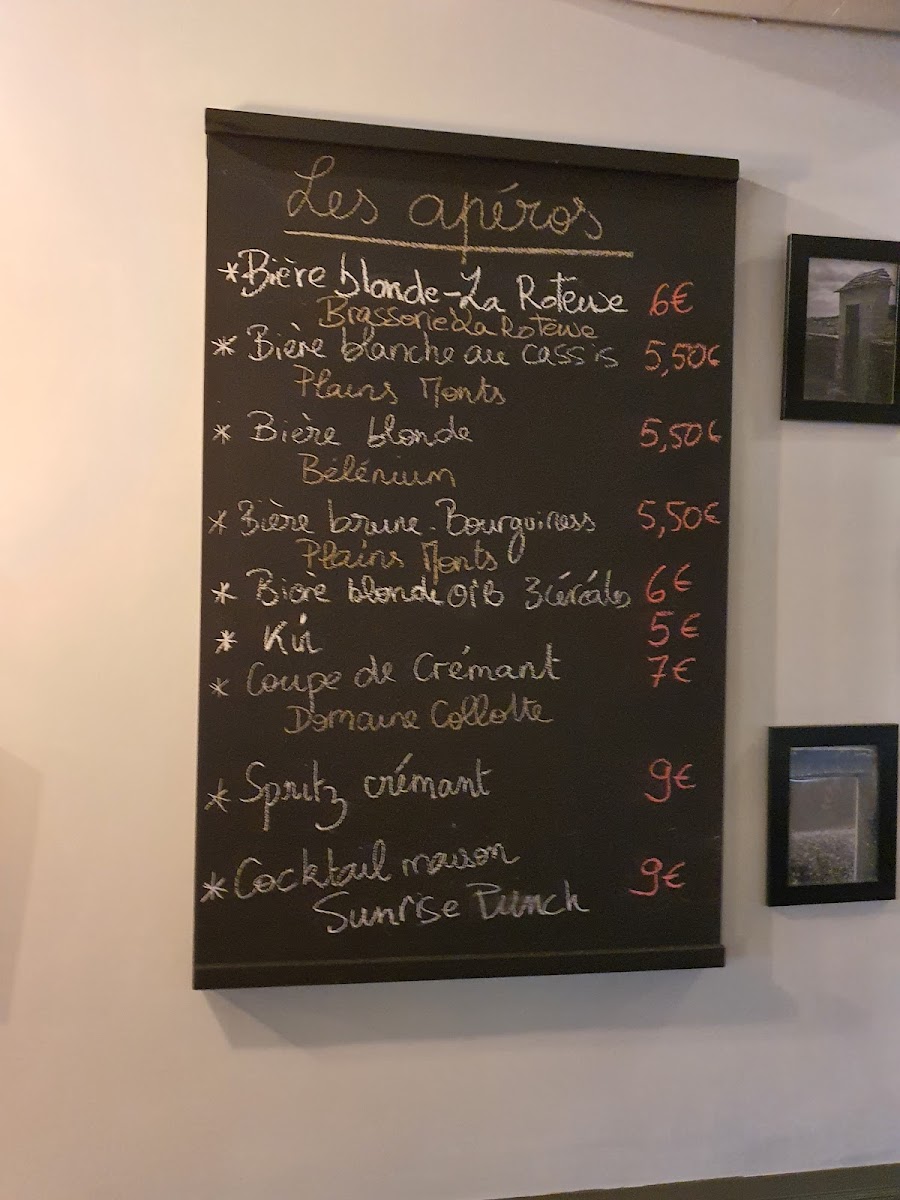 Les apéros
*Bière blonde-La Roteuse 6€
Brasserie La Roteuse
* Bière blanche au cassis 5,50€
Plains Monts
* Bière blonde 5,50€
Bélénium
* Bière brune-Bourguiness 5,50€
Plains Monts
* Bière blonde 3 céréales 6€
* Kir 5€
* Coupe de Crémant 7€
Domaine Collotte
* Spritz crémant 9€
*Cocktail maison 9€
Sunrise Punch